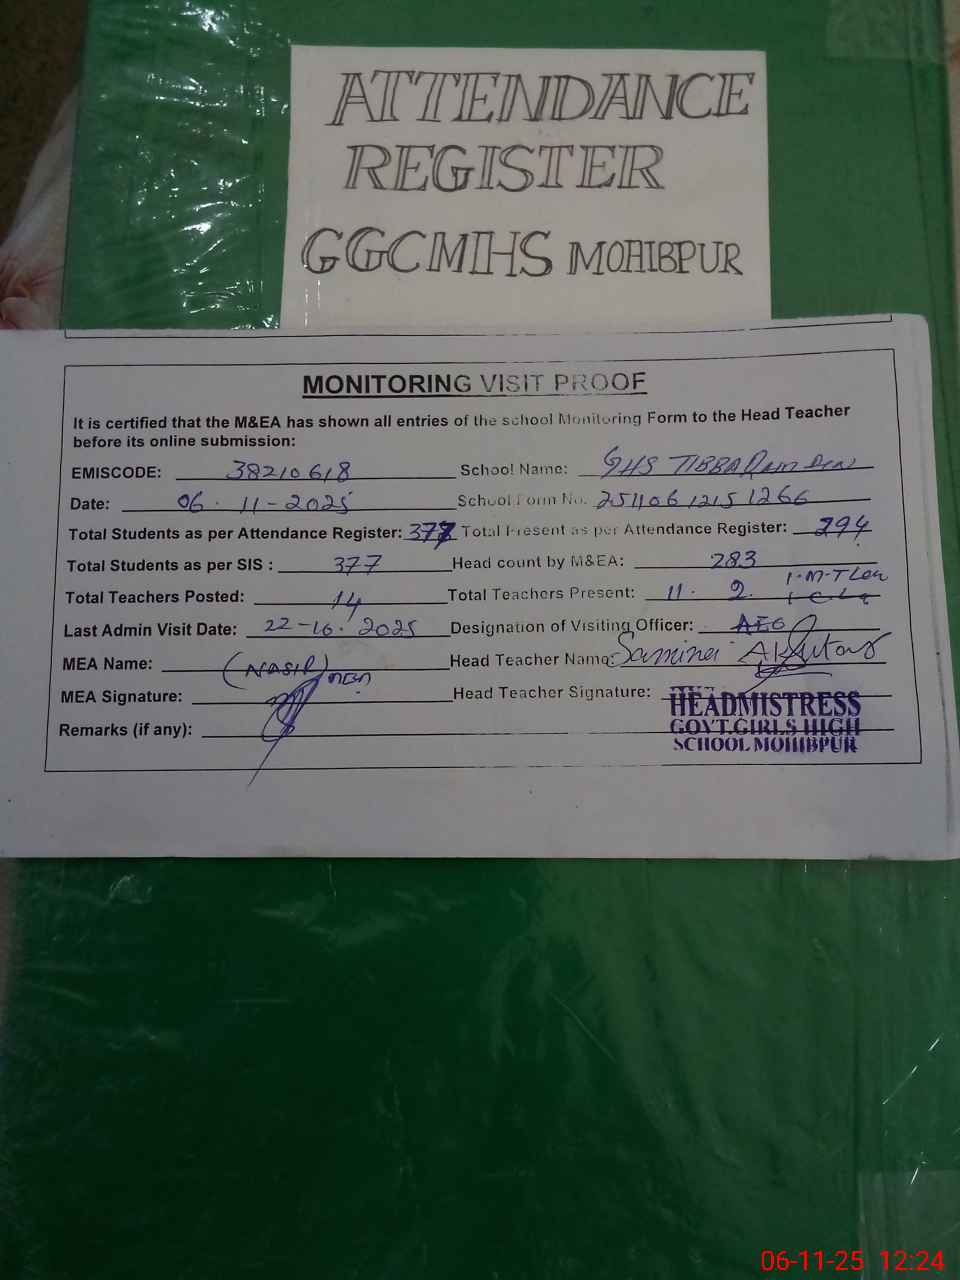 ATTENDANCE
REGISTER
GGCMHS MOHIBPUR
MONITORING VISIT PROOF
It is certified that the M&EA has shown all entries of the school Monitoring Form to the Head Teacher
before its online submission:
EMISCODE: 38210618 School Name: GHS TIBBA
Date: 06-11-2025 School Form No. 25110612151266
Total Students as per Attendance Register: 377 Total Present as per Attendance Register: 294
Total Students as per SIS : 377 Head count by M&EA: 283
Total Teachers Posted: 14 Total Teachers Present: 11.
Last Admin Visit Date: 22-10-2025 Designation of Visiting Officer: AEO
MEA Name: (NASIR) Head Teacher Name: Samina Akhtar
MEA Signature: Head Teacher Signature:
Remarks (if any):
HEADMISTRESS
GOVT.GIRLS HIGH
SCHOOL MOHIBPUR
06-11-25 12:24